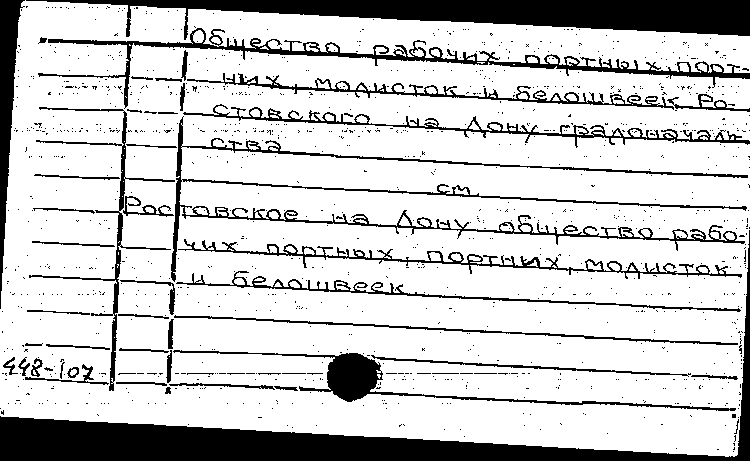 Общество рабочих портных, порт-
них, модисток и белошвеек Ро-
стовского на Дону градоначаль-
ства
см.
Ростовское на Дону общество рабо-
чих портных, портних, модисток
и белошвеек
448-107